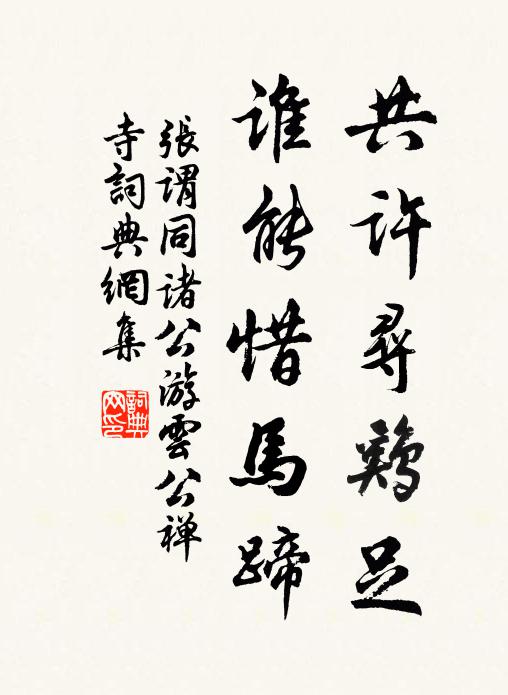 共许尋鷄足
谁能惜馬蹄
張谓同诸公游雲公禅
寺詞典網集
詞典
网印